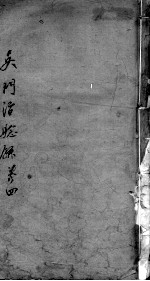 吴門治驗錄卷四